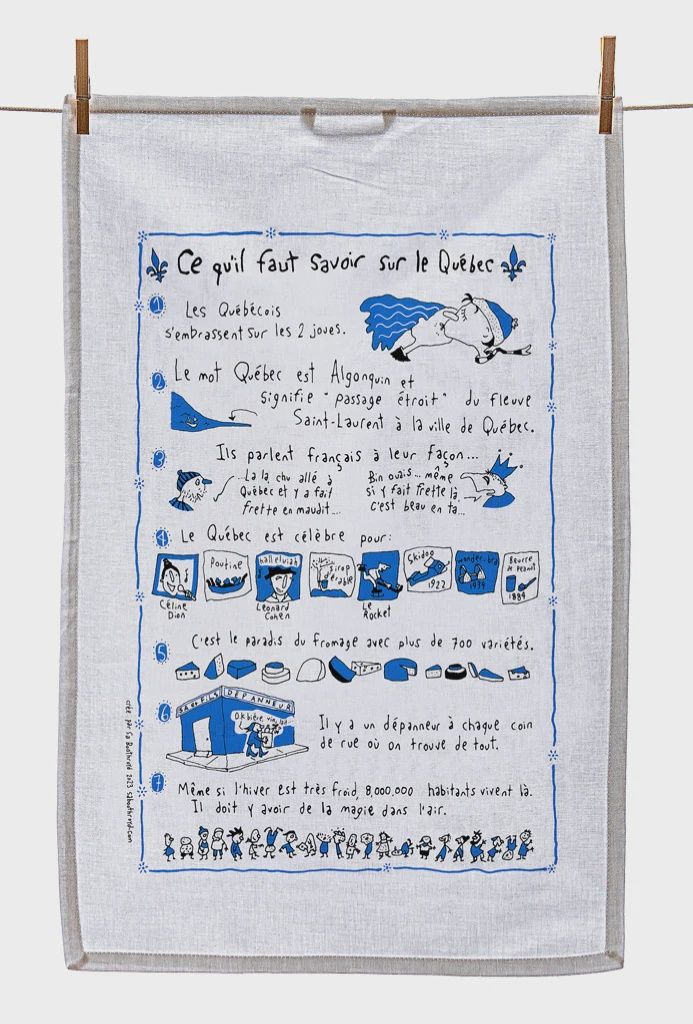 Ce qu'il faut savoir sur le Québec
1
Les Québécois
s'embrassent sur les 2 joues.
2
Le mot Québec est Algonquin et
signifie "passage étroit" du fleuve
Saint-Laurent à la ville de Québec.
3
Ils parlent français à leur façon...
...La la, chu allé à
Québec et y a fait
frette en maudit...
Bin ouais... même
si y fait frette là,
c'est beau en ta...
4
Le Québec est célèbre pour:
Céline
Dion
Poutine
halleluiah
Leonard
Cohen
sirop
d'érable
Le
Rocket
Skidoo
1922
wonder-bra
1939
Beurre
de Peanut
1884
5
C'est le paradis du fromage avec plus de 700 variétés.
6
DÉPANNEUR
Il y a un dépanneur à chaque coin
de rue où on trouve de tout.
7
Même si l'hiver est très froid, 8,000,000 habitants vivent là.
Il doit y avoir de la magie dans l'air.